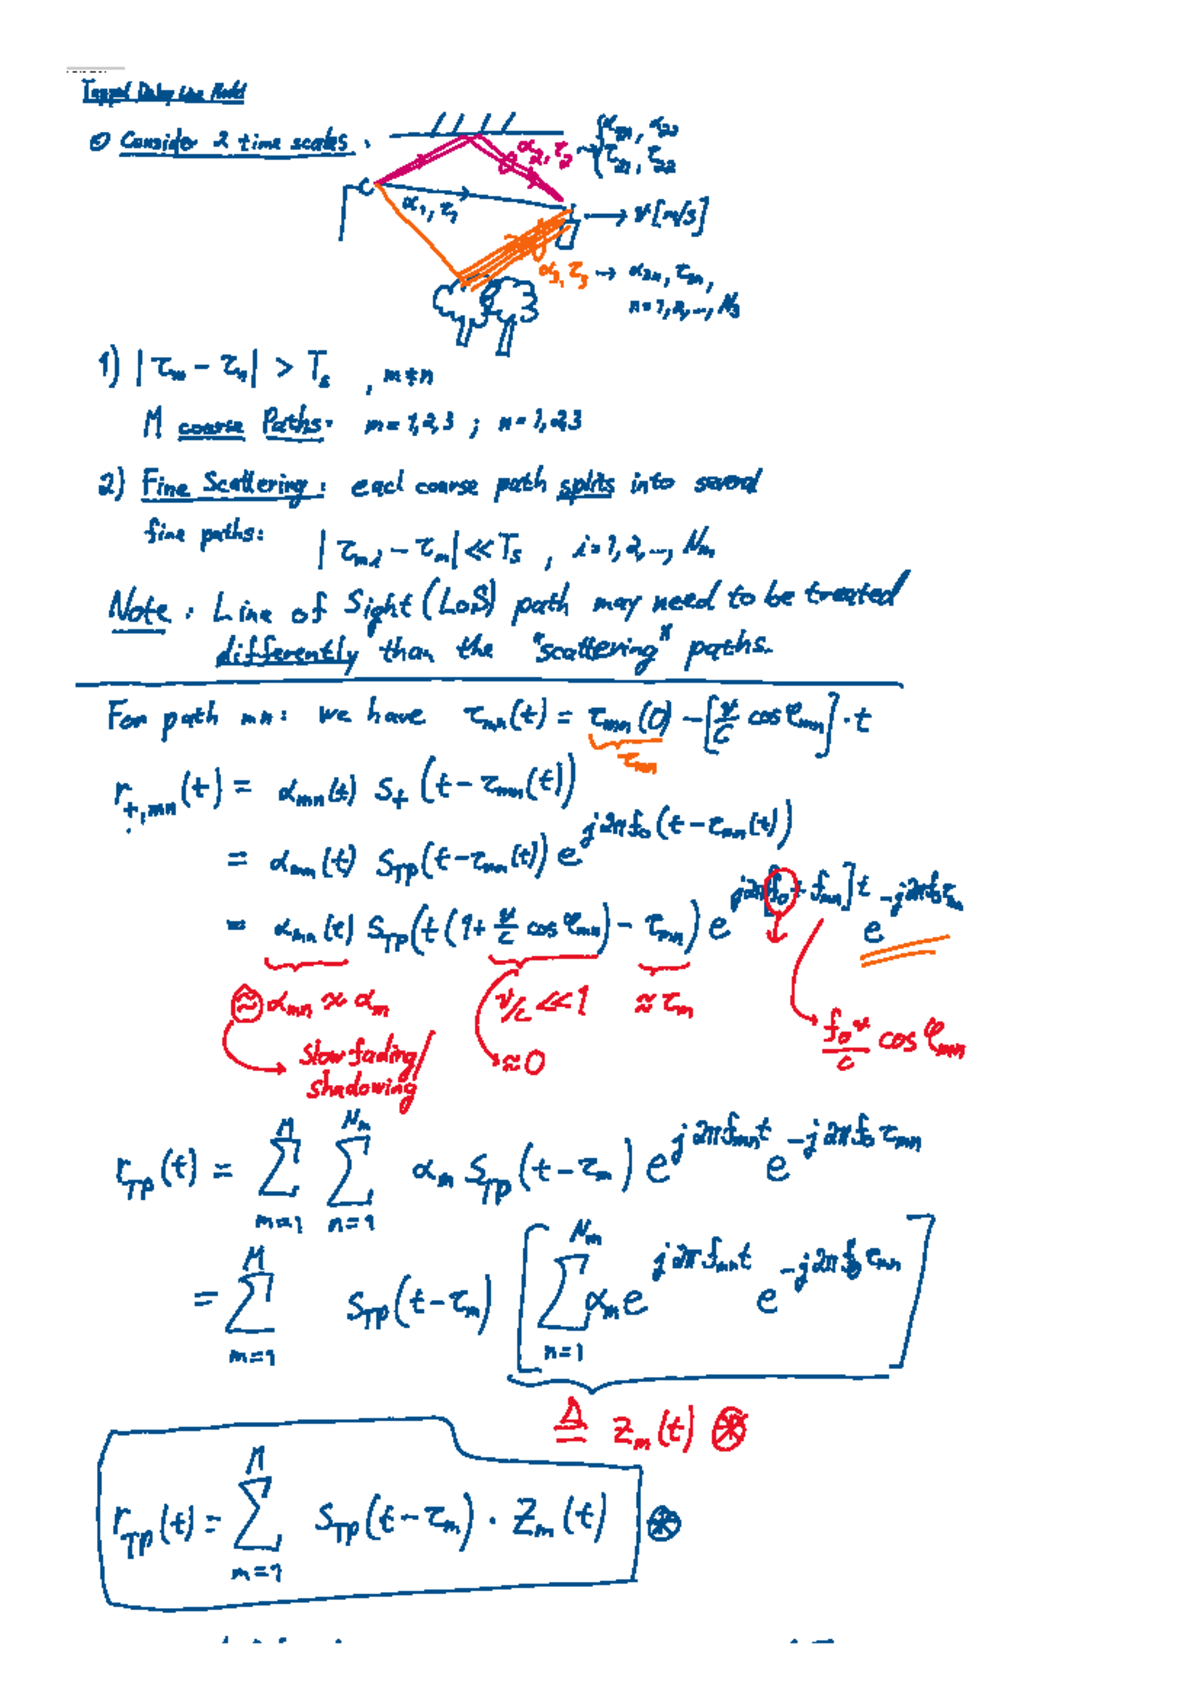 Tapped Delay Line Model
⊙ Consider 2 time scales:
α₂, τ₂ → { α₂₁, α₂₂
τ₂₁, τ₂₂
α₁, τ₁
→ v [m/s]
α₃, τ₃ → α₃ₙ, τ₃ₙ,
n = 1, 2, ..., N₃
1) |τₘ - τₙ| > Tₛ , m ≠ n
M coarse Paths: m = 1,2,3 ; n = 1,2,3
2) Fine Scattering: each coarse path splits into several
fine paths: |τₘ,ᵢ - τₘ| ≪ Tₛ , i = 1, 2, ..., Nₘ
Note: Line of Sight (LoS) path may need to be treated
differently than the "scattering" paths.
For path mn: we have τₘₙ(t) = τₘₙ(0) - [v/c cos φₘₙ] · t
τₘₙ
r₊,ₘₙ(t) = αₘₙ(t) s₊(t - τₘₙ(t))
= αₘₙ(t) s_TP(t - τₘₙ(t)) e^{j2πf₀(t - τₘₙ(t))}
= αₘₙ(t) s_TP(t(1 + v/c cos φₘₙ) - τₘₙ) e^{j2π[f₀ + fₘₙ]t} e^{-j2πf₀τₘₙ}
≈ αₘₙ ≈ αₘ
v/c ≪ 1
≈ τₘ
f₀v/c cos φₘₙ
Slow fading/
shadowing
≈ 0
r_TP(t) = Σ_{m=1}^{M} Σ_{n=1}^{Nₘ} αₘ s_TP(t - τₘ) e^{j2πfₘₙt} e^{-j2πf₀τₘₙ}
= Σ_{m=1}^{M} s_TP(t - τₘ) [ Σ_{n=1}^{Nₘ} αₘ e^{j2πfₘₙt} e^{-j2πf₀τₘₙ} ]
≜ zₘ(t) ⊛
r_TP(t) = Σ_{m=1}^{M} s_TP(t - τₘ) · zₘ(t) ⊛